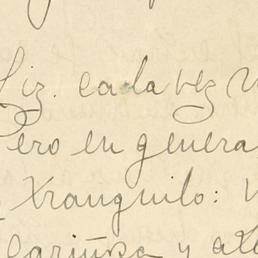 liz. cada vez
Pero en genera
tranquilo:
Cariñosa y